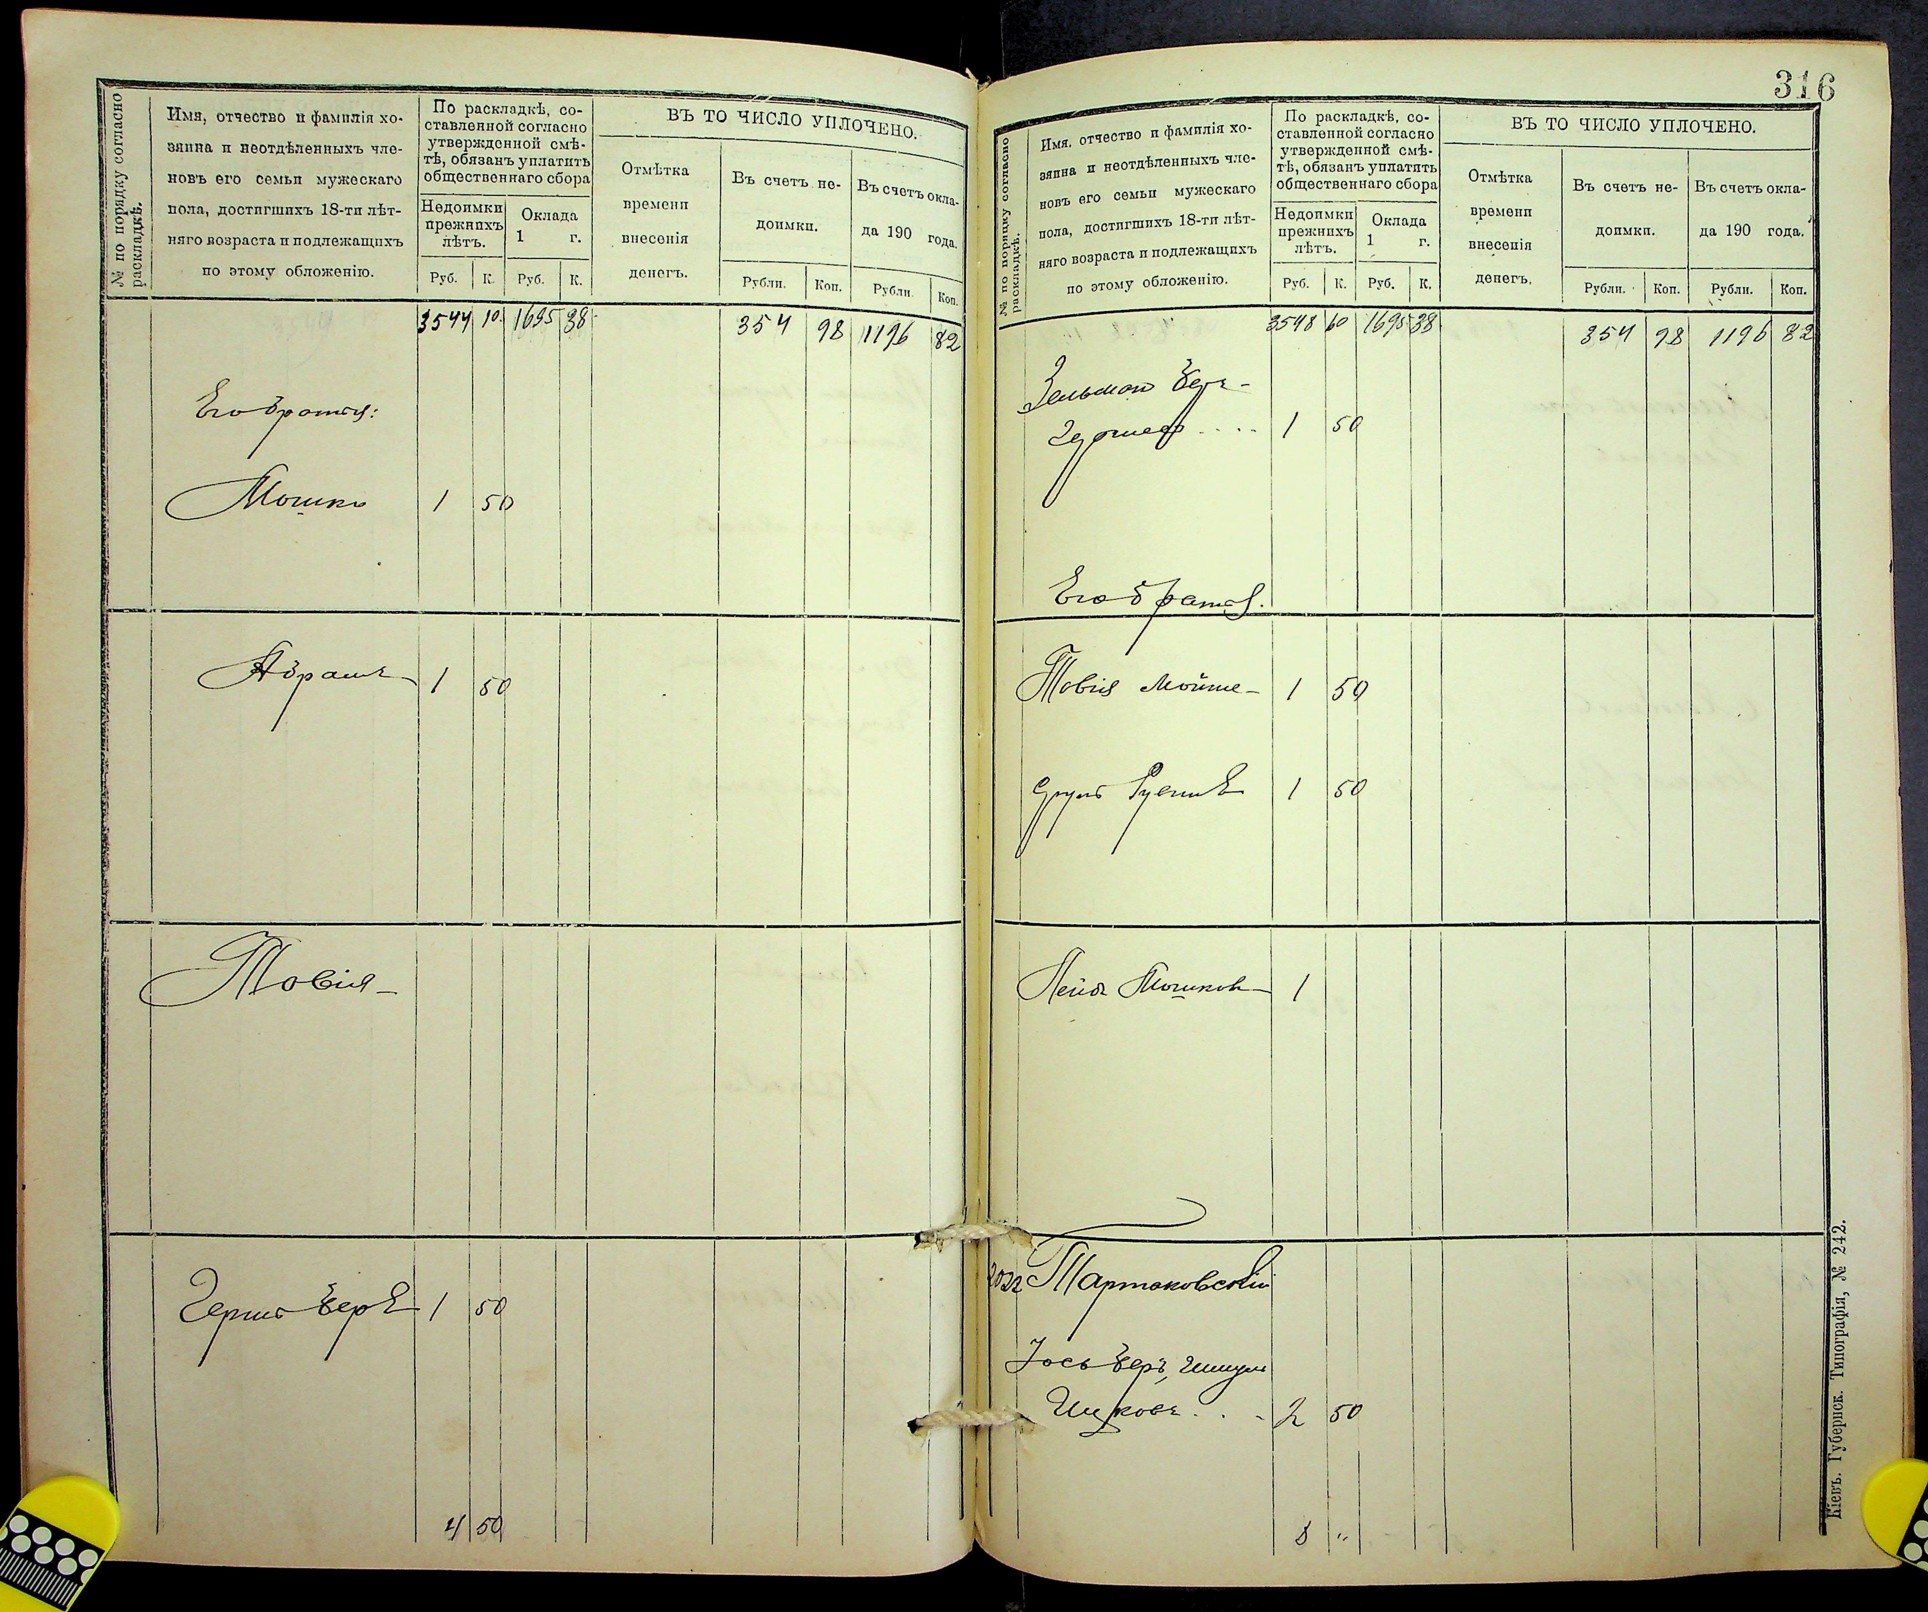 № по порядку согласно
раскладкѣ.
Имя, отчество и фамилія хо-
зяина и неотдѣленныхъ чле-
новъ его семьи мужескаго
пола, достигшихъ 18-ти лѣт-
няго возраста и подлежащихъ
по этому обложенію.
По раскладкѣ, со-
ставленной согласно
утвержденной смѣ-
тѣ, обязанъ уплатить
общественнаго сбора
Недоимки
прежнихъ
лѣтъ.
Оклада
1 г.
Руб. К. Руб. К.
ВЪ ТО ЧИСЛО УПЛОЧЕНО.
Отмѣтка
времени
внесенія
денегъ.
Въ счетъ не-
доимки.
Въ счетъ окла-
да 190 года.
Рубли. Коп. Рубли. Коп.
3544 10 1695 38 354 98 1196 82
Его братья:
Мошко 1 50
Абрамъ 1 50
Товія
Гершъ Беръ 1 50
4 50
316
№ по порядку согласно
раскладкѣ.
Имя, отчество и фамилія хо-
зяина и неотдѣленныхъ чле-
новъ его семьи мужескаго
пола, достигшихъ 18-ти лѣт-
няго возраста и подлежащихъ
по этому обложенію.
По раскладкѣ, со-
ставленной согласно
утвержденной смѣ-
тѣ, обязанъ уплатить
общественнаго сбора
Недоимки
прежнихъ
лѣтъ.
Оклада
1 г.
Руб. К. Руб. К.
ВЪ ТО ЧИСЛО УПЛОЧЕНО.
Отмѣтка
времени
внесенія
денегъ.
Въ счетъ не-
доимки.
Въ счетъ окла-
да 190 года.
Рубли. Коп. Рубли. Коп.
3548 60 1695 38 354 98 1196 82
Зельман Беръ
1 50
Его братья.
Товія Мойше 1 50
Сруль 1 50
Лейбъ Мошков 1
2022 Тартаковскій
Іось Беръ, Шмуль
Ицковъ 2 50
8 "
Кіевъ. Губернск. Типографія, № 242.